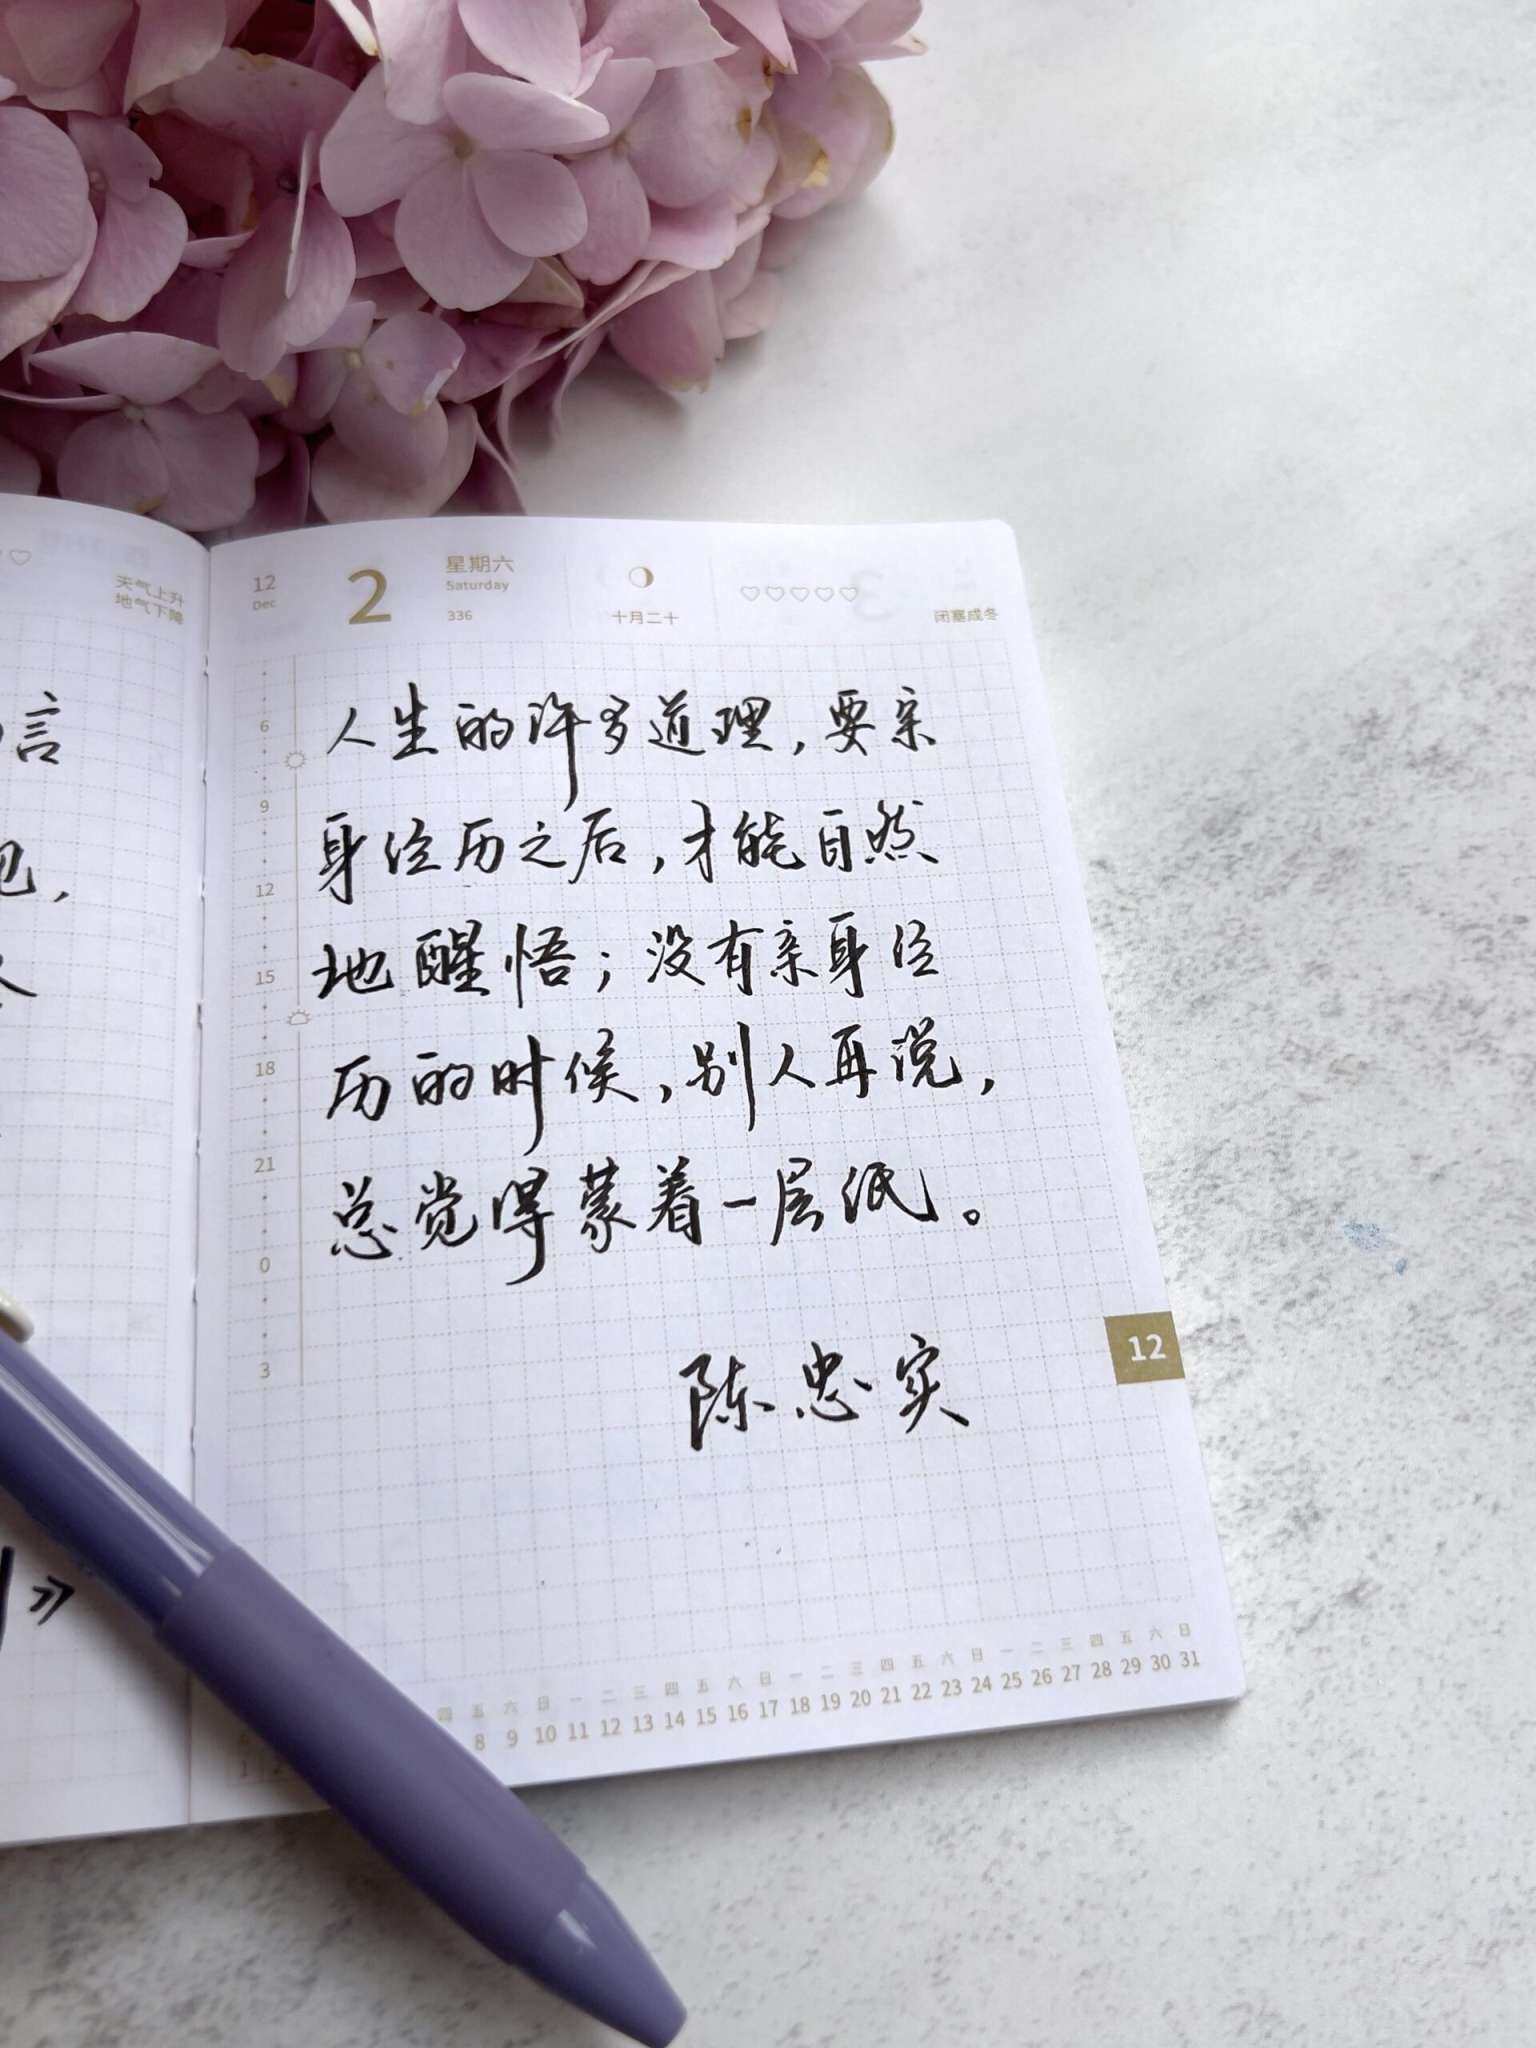 天气上升
地气下降
言
》
12
Dec
2
星期六
Saturday
336
十月二十
闭塞成冬
6
9
12
15
18
21
0
3
人生的许多道理，要亲
身经历之后，才能自然
地醒悟；没有亲身经
历的时候，别人再说，
总觉得蒙着一层纸。
陈忠实
12
四 五 六 日 一 二 三 四 五 六 日 一 二 三 四 五 六 日 一 二 三 四 五 六 日
8 9 10 11 12 13 14 15 16 17 18 19 20 21 22 23 24 25 26 27 28 29 30 31